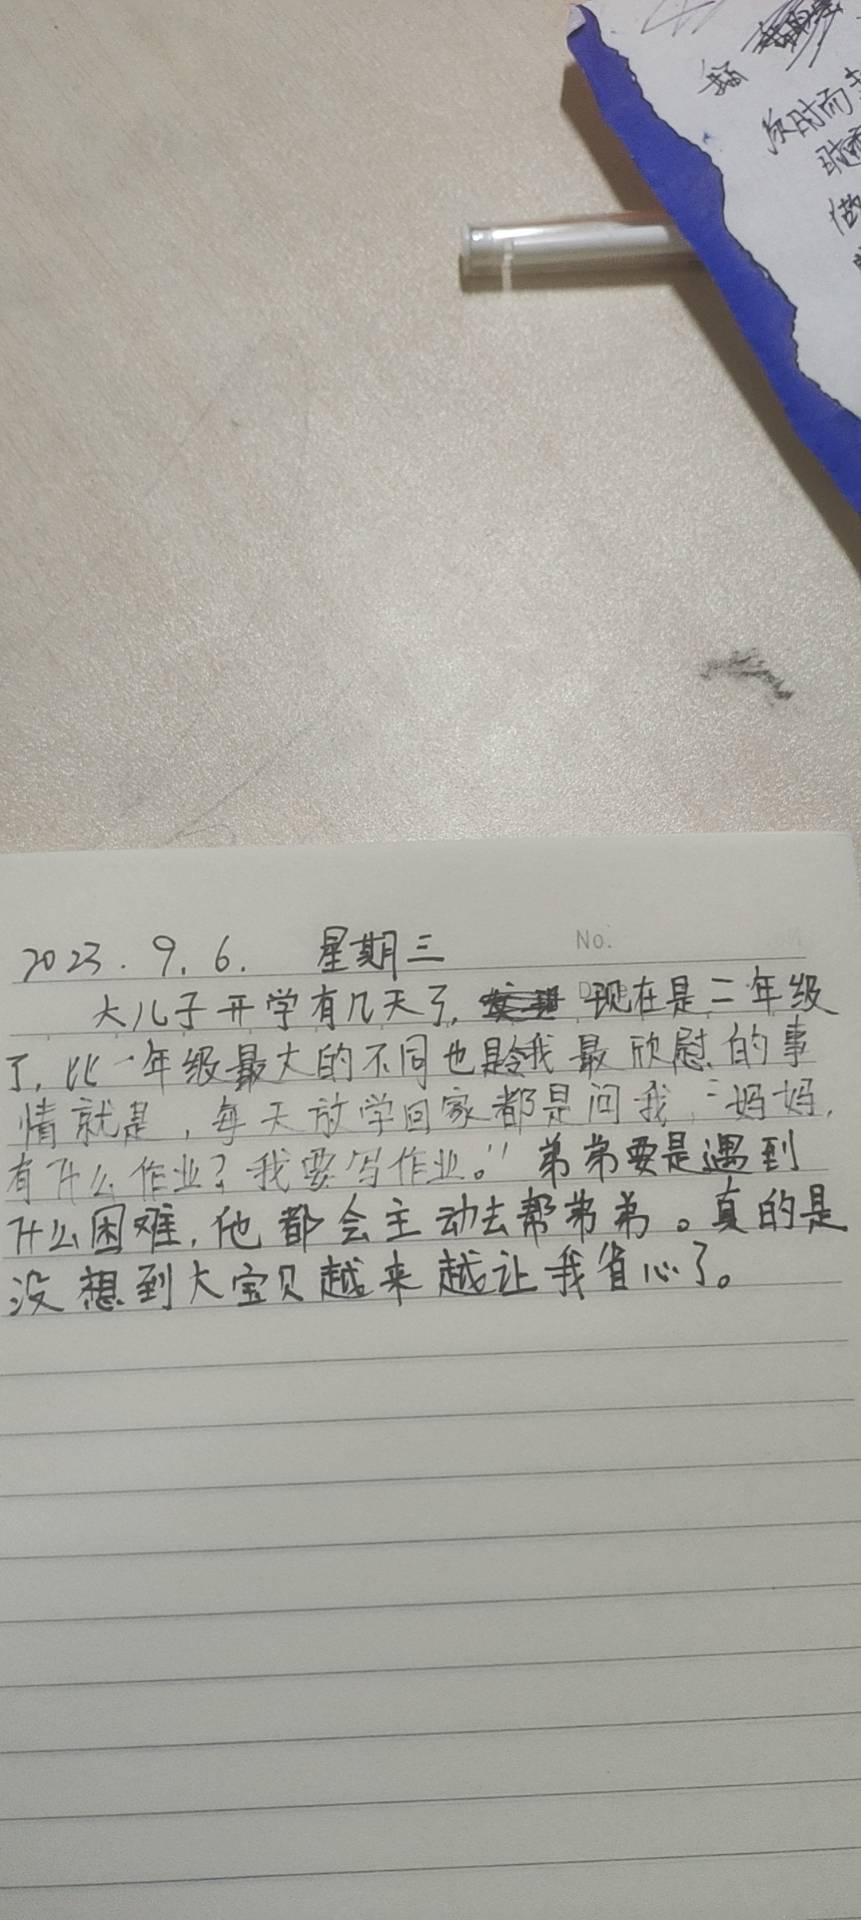 我
反时而
做
No.
2023.9.6. 星期三
大儿子开学有几天了,现在是二年级
了,比一年级最大的不同也是令我最欣慰的事
情就是,每天放学回家都是问我,“妈妈,
有什么作业?我要写作业。”弟弟要是遇到
什么困难,他都会主动去帮弟弟。真的是
没想到大宝贝越来越让我省心了。